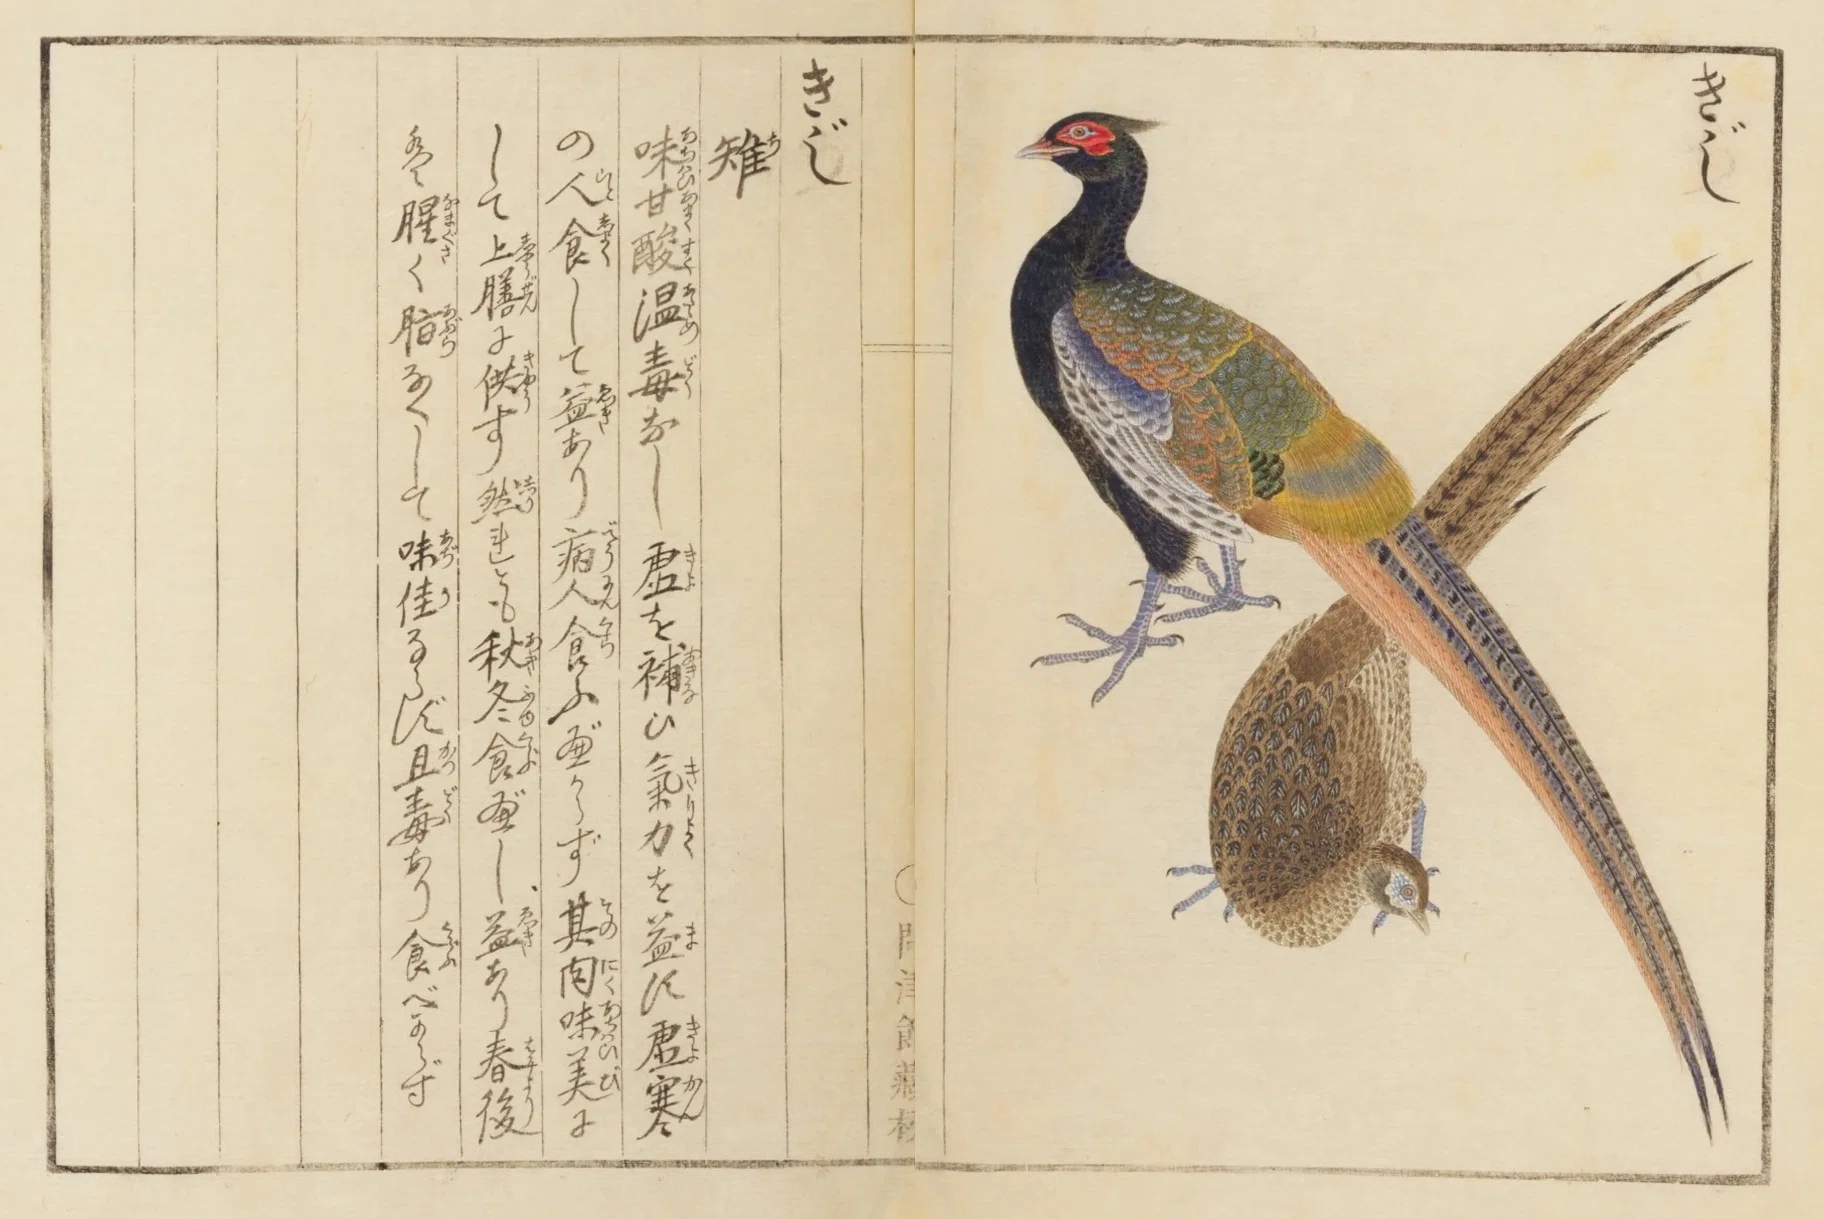 きゞし
問津館藏板
きゞし
雉
味甘酸温毒なし虚を補ひ氣力を益す虚寒
の人食して益あり病人食ふべからず其肉味美に
して上膳に供す然れども秋冬食べし、益あり春後
腥く脂なくして味佳ならず且毒あり食べからず